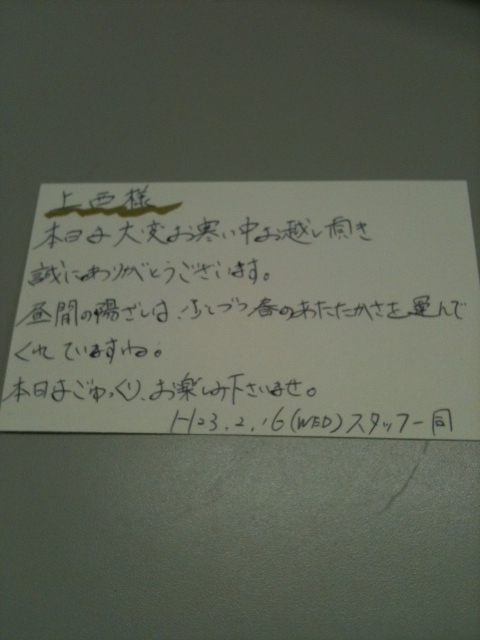 上西様
本日は大変お寒い中お越し頂き
誠にありがとうございます。
昼間の陽ざしは、少しづつ春のあたたかさを運んで
くれていますね。
本日はごゆっくり、お楽しみ下さいませ。
H23.2.16(WED)スタッフ一同